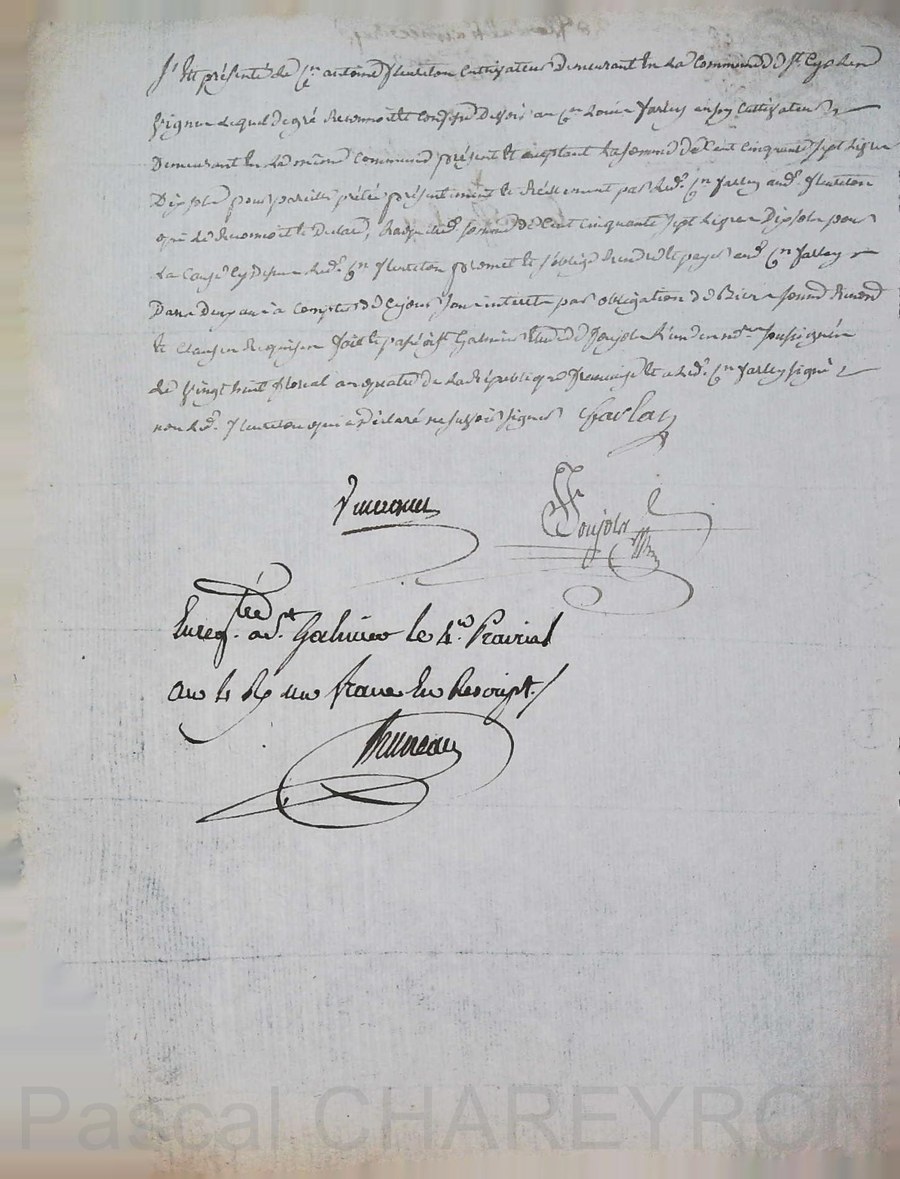 S'est présenté le Cen antoine fleuriton Cultivateur Demeurant En la Commune de St. Cyr les
Vignes lequel de gré Reconnoit et Confesse Devoir au Cen Louis Farley
Demeurant En la même Commune présent et acceptant la somme de Cent cinquante sept livres
Dix sols pour pareille prêtée présentement et Réellement par led. Cn farley aud. fleuriton
qui le Reconnoit et Declare, laquelle somme de Cent Cinquante sept livres Dix sols pour
La Cause Cy Dessus led. Cn fleuriton promet et s'oblige Rendre et payer aud. Cn farley
Dans Deux ans à Compter de Ce jour sans interets par obligation de Biens
et Clauses Requises fait et passé à St Galmier Etude de Soujols l'un des nores soussignés
Le Vingt huit floreal an quatre de la République française et a led. Cn farley signé
non led. fleuriton qui a Déclaré ne sçavoir signer Farlay
Soujols
Enregtré a St Galmier le 4. Prairial
an 4 R un franc En Rescript./
Bruneau
Pascal CHAREYRON